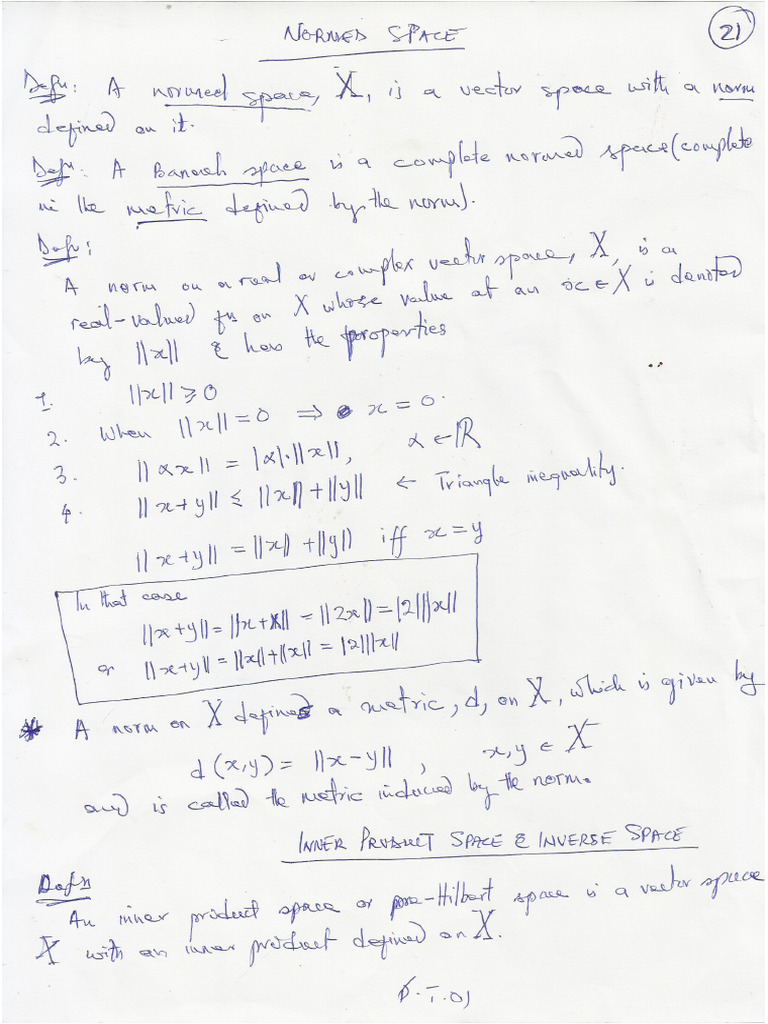 NORMED SPACE
21
Defn: A normed space, X, is a vector space with a norm
defined on it.
Defn: A Banach space is a complete normed space (complete
in the metric defined by the norm).
Defn:
A norm on a real or complex vector space, X, is a
real-valued fn on X whose value at an x ∈ X is denoted
by ||x|| & has the properties
1. ||x|| ≥ 0
2. When ||x|| = 0 ⇒ x = 0.
3. ||αx|| = |α|·||x||, α ∈ ℝ
4. ||x+y|| ≤ ||x|| + ||y|| ← Triangle inequality.
||x+y|| = ||x|| + ||y|| iff x = y
In that case
||x+y|| = ||x+x|| = ||2x|| = |2|||x||
or ||x+y|| = ||x||+||x|| = |2|||x||
* A norm on X defines a metric, d, on X, which is given by
d(x,y) = ||x-y||, x,y ∈ X
and is called the metric induced by the norm.
INNER PRODUCT SPACE & INVERSE SPACE
Defn
An inner product space or pre-Hilbert space is a vector space
X with an inner product defined on X.
P.T.O)